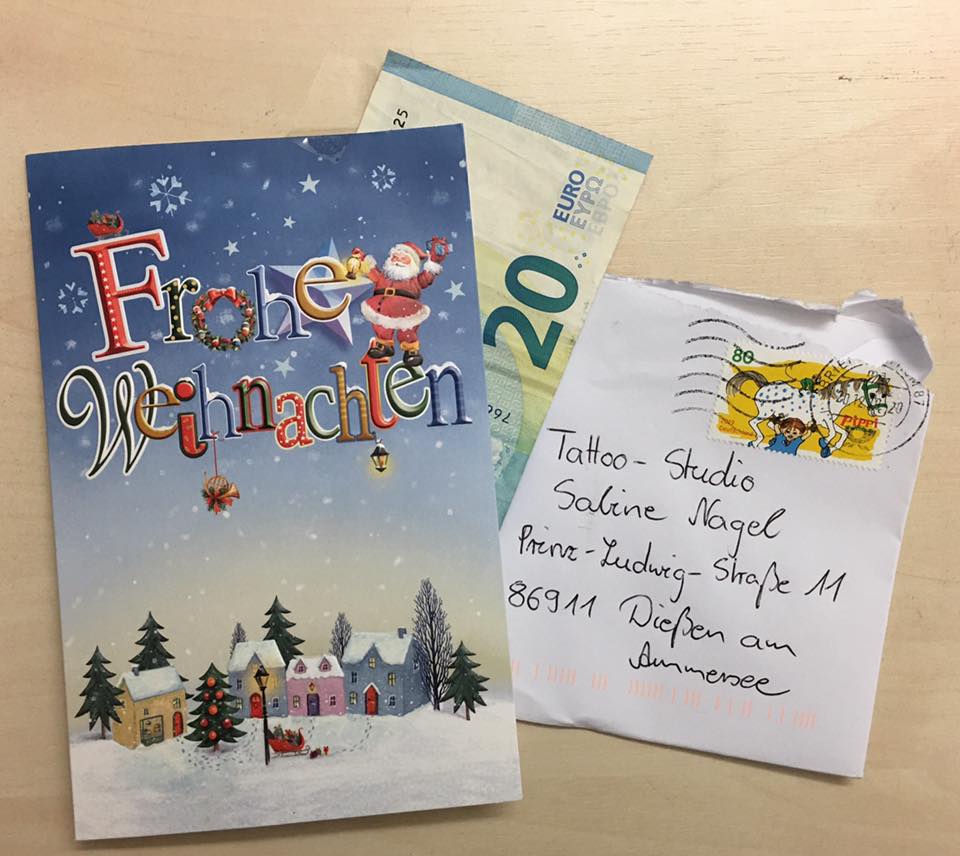 Frohe
Weihnachten
25
EURO
ΕΥΡΩ
ЕВРО
20
80
Pippi
Tattoo-Studio
Sabine Nagel
Prinz-Ludwig-Straße 11
86911 Dießen am
Ammersee